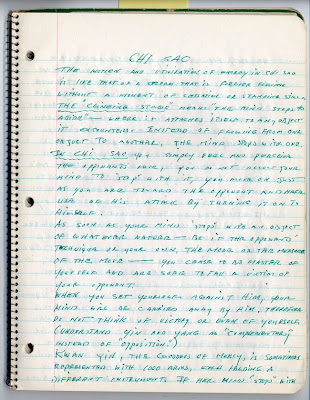 CHI SAO
THE MOTION AND UTILIZATION OF ENERGY IN CHI SAO
IS LIKE THAT OF A STREAM THAT IS FOREVER FLOWING
WITHOUT A MOMENT OF CESSATION OR STANDING STILL.
THE "CLINGING STAGE" MEANS "THE MIND STOPS TO
ABIDE" — WHERE IT ATTACHES ITSELF TO ANY OBJECT
IT ENCOUNTERS. INSTEAD OF FLOWING FROM ONE
OBJECT TO ANOTHER, THE MIND STOPS WITH ONE.
IN CHI SAO YOU SIMPLY FEEL AND PERCEIVE
THE OPPONENT'S MOVE, YOU DO NOT ALLOW YOUR
MIND TO "STOP" WITH IT, YOU MOVE ON JUST
AS YOU ARE TOWARD THE OPPONENT AND MAKE
USE OF HIS ATTACK BY TURNING IT ON TO
HIMSELF.
AS SOON AS YOUR MIND "STOPS" WITH AN OBJECT
OF WHATEVER NATURE — BE IT THE OPPONENT'S
TECHNIQUE OR YOUR OWN, THE MODE OR THE MEASURE
OF THE MOVE — YOU CEASE TO BE MASTER OF
YOURSELF AND ARE SURE TO FALL A VICTIM OF
YOUR OPPONENT.
WHEN YOU SET YOURSELF AGAINST HIM, YOUR
MIND WILL BE CARRIED AWAY BY HIM, THEREFORE
DO NOT THINK OF VICTORY OR EVEN OF YOURSELF
(UNDERSTAND YIN AND YANG AS "COMPLEMENTARY"
INSTEAD OF "OPPOSITION.")
KWAN YIN, THE GODDESS OF MERCY, IS SOMETIMES
REPRESENTED WITH 1000 ARMS, EACH HOLDING A
DIFFERENT INSTRUMENT. IF HER MIND "STOPS" WITH